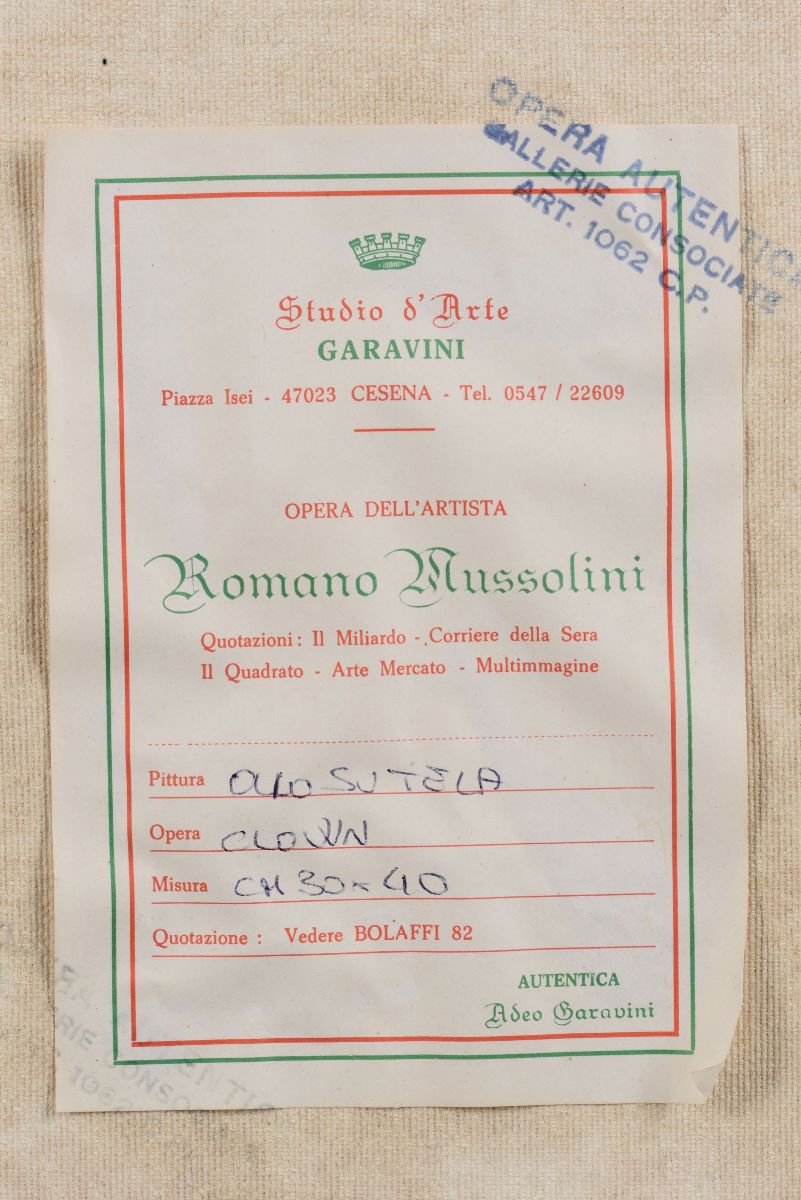 OPERA AUTENTICA
GALLERIE CONSOCIATE
ART. 1062 C.P.
Studio d'Arte
GARAVINI
Piazza Isei - 47023 CESENA - Tel. 0547 / 22609
OPERA DELL'ARTISTA
Romano Mussolini
Quotazioni: Il Miliardo - Corriere della Sera
Il Quadrato - Arte Mercato - Multimmagine
Pittura OLIO SU TELA
Opera CLOWN
Misura CM 30x40
Quotazione : Vedere BOLAFFI 82
AUTENTICA
Adeo Garavini